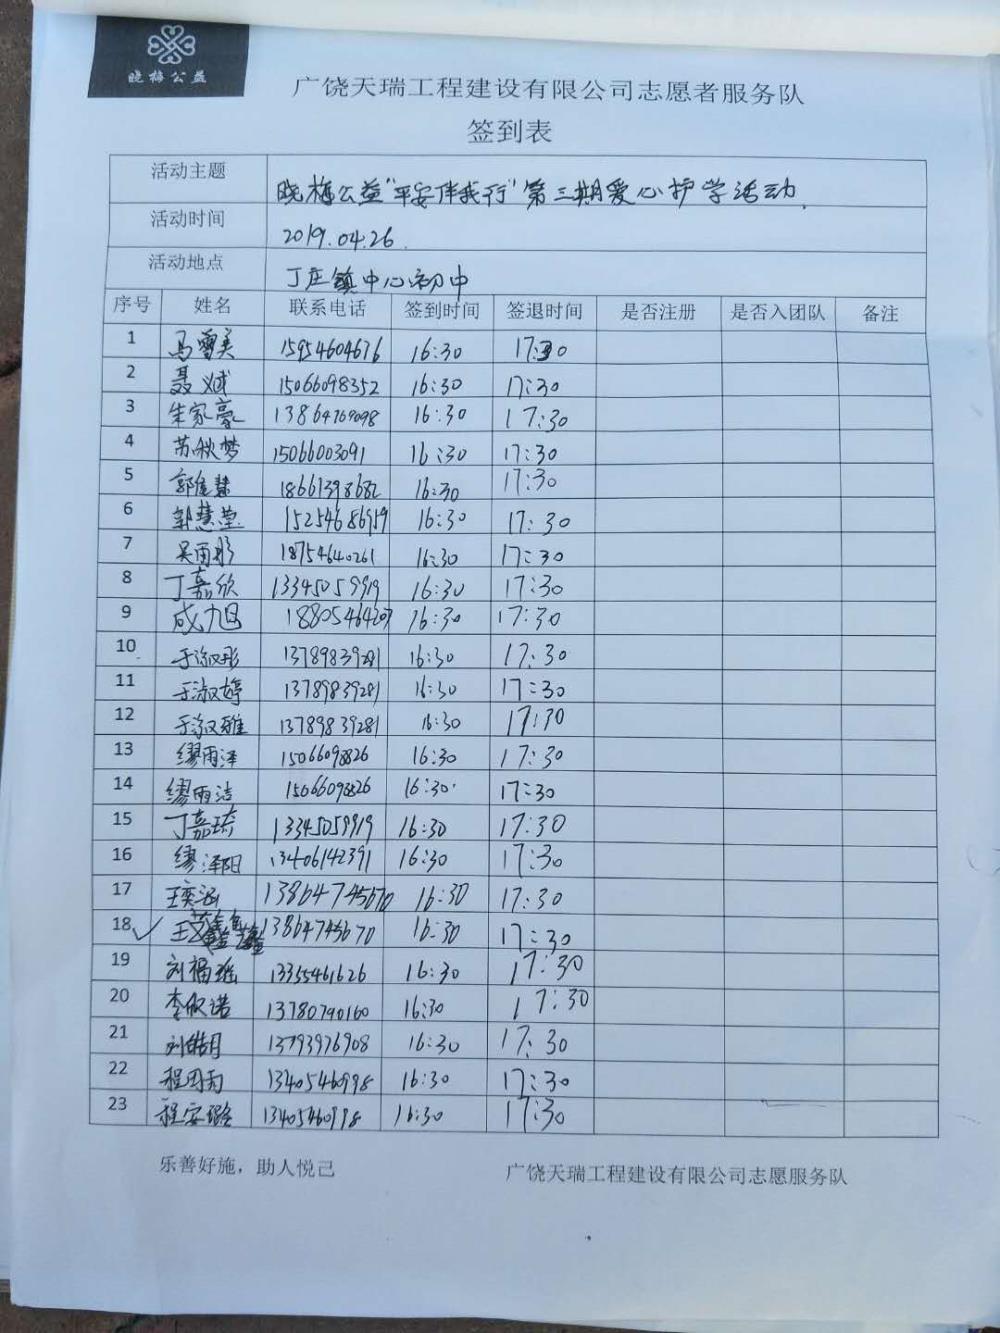 晓梅公益
广饶天瑞工程建设有限公司志愿者服务队
签到表
活动主题 晓梅公益"平安伴我行"第三期爱心护学活动.
活动时间 2019.04.26.
活动地点 丁庄镇中心初中
序号 姓名 联系电话 签到时间 签退时间 是否注册 是否入团队 备注
1 马雪美 15954604676 16:30 17:30
2 聂斌 15066098352 16:30 17:30
3 朱家豪 13864769098 16:30 17:30
4 苏秋梦 15066003091 16:30 17:30
5 郭佳慧 18661398682 16:30 17:30
6 郭慧莹 15254686959 16:30 17:30
7 吴雨彤 18754640261 16:30 17:30
8 丁嘉欣 13345059919 16:30 17:30
9 成旭 18805464207 16:30 17:30
10 于淑彤 13789839281 16:30 17:30
11 于淑婷 13789839281 16:30 17:30
12 于淑雅 13789839281 16:30 17:30
13 缪雨泽 15066098826 16:30 17:30
14 缪雨洁 15066098826 16:30 17:30
15 丁嘉琦 13345059919 16:30 17:30
16 缪泽阳 13406142391 16:30 17:30
17 王奕涵 13864745670 16:30 17:30
18 王 13864745670 16:30 17:30
19 刘福瑶 13355461626 16:30 17:30
20 李欣诺 13780790160 16:30 17:30
21 刘皓月 13793976908 16:30 17:30
22 程雨 13405460998 16:30 17:30
23 程安璐 13405460998 16:30 17:30
乐善好施，助人悦己 广饶天瑞工程建设有限公司志愿服务队